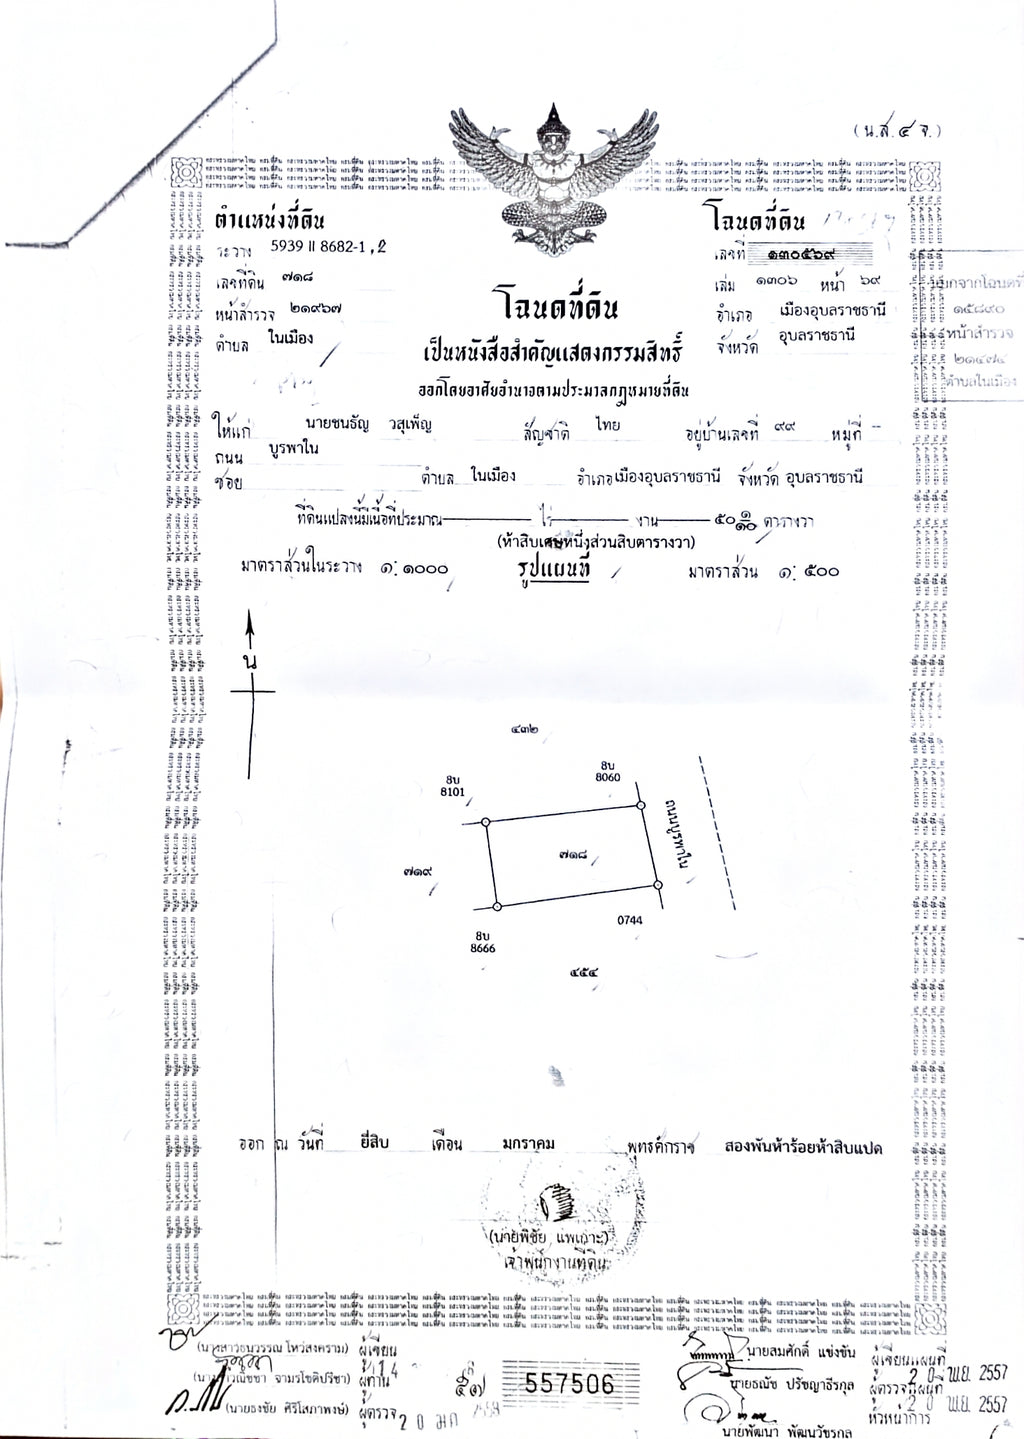 (น.ส.๔ จ.)
ตำแหน่งที่ดิน
ระวาง 5939 II 8682-1,2
เลขที่ดิน ๗๑๘
หน้าสำรวจ ๒๑๙๖๗
ตำบล ในเมือง
โฉนดที่ดิน
เลขที่ ๑๓๐๕๖๙
เล่ม ๑๓๐๖ หน้า ๖๙
อำเภอ เมืองอุบลราชธานี
จังหวัด อุบลราชธานี
แยกจากโฉนดที่
๑๕๘๙๐
หน้าสำรวจ
๒๑๔๗๔
ตำบลในเมือง
โฉนดที่ดิน
เป็นหนังสือสำคัญแสดงกรรมสิทธิ์
ออกโดยอาศัยอำนาจตามประมวลกฎหมายที่ดิน
ให้แก่ นายชนธัญ วสุเพ็ญ สัญชาติ ไทย อยู่บ้านเลขที่ ๙๙ หมู่ที่ -
ถนน บูรพาใน
ซอย ตำบล ในเมือง อำเภอ เมืองอุบลราชธานี จังหวัด อุบลราชธานี
ที่ดินแปลงนี้มีเนื้อที่ประมาณ ไร่ งาน ๕๐ ๑/๑๐ ตารางวา
(ห้าสิบเศษหนึ่งส่วนสิบตารางวา)
มาตราส่วนในระวาง ๑:๑๐๐๐ รูปแผนที่ มาตราส่วน ๑:๕๐๐
น
๔๓๒
8บ
8101
8บ
8060
ถนนบูรพาใน
๗๑๘
๗๑๙
8บ
8666
0744
๔๕๔
ออก ณ วันที่ ยี่สิบ เดือน มกราคม พุทธศักราช สองพันห้าร้อยห้าสิบแปด
(นายพิชัย แพเกาะ)
เจ้าพนักงานที่ดิน
ผู้เขียน
ผู้ตรวจ
(นายธงชัย ศิริโสภาพงษ์)
557506
นายสมศักดิ์ แข่งขัน ผู้เขียนแผนที่
20 พ.ย. 2557
นายธณัช ปรัชญาธีรกุล ผู้ตรวจแผนที่
20 พ.ย. 2557
นายพัฒนา พัฒนวัชรกุล หัวหน้าการ